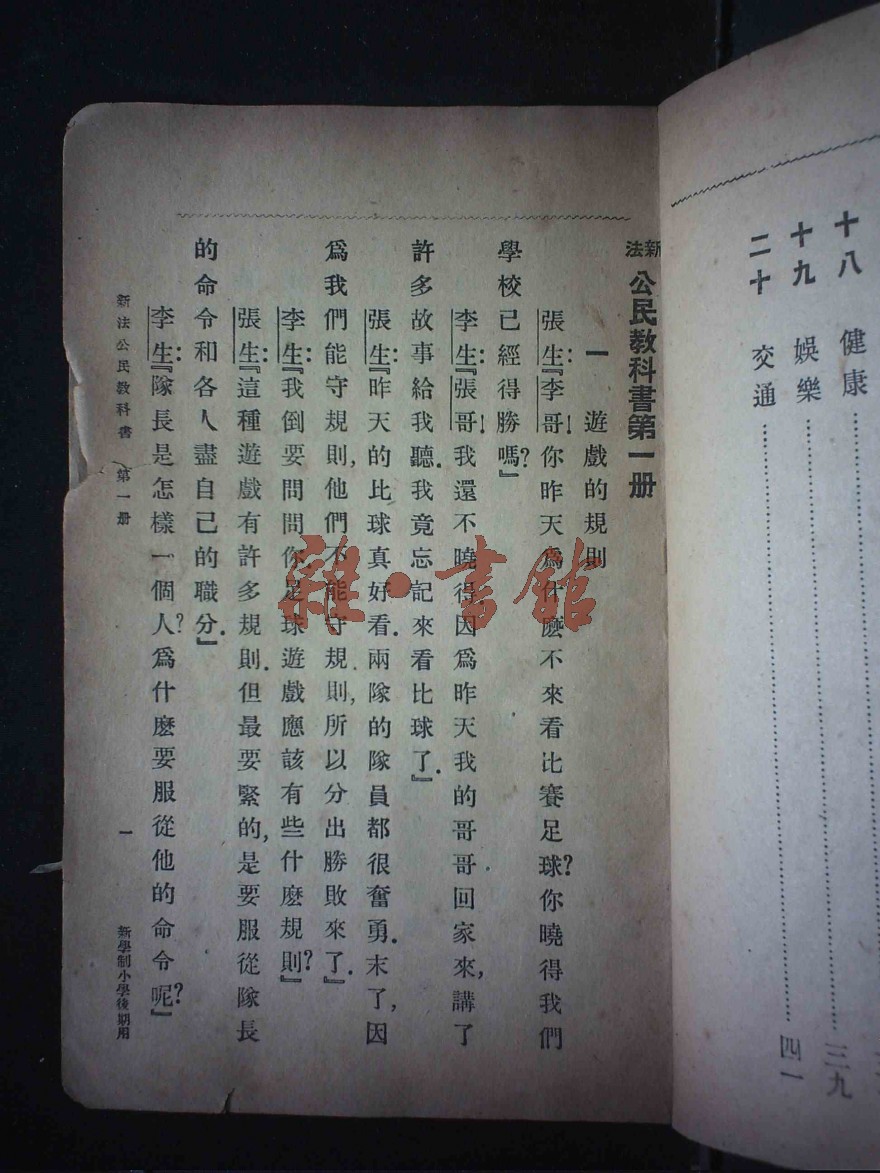 十八 健康……三九
十九 娛樂……
二十 交通……四一
新法 公民教科書第一册
一 遊戲的規則
張生:『李哥!你昨天爲什麼不來看比賽足球?你曉得我們
學校已經得勝嗎?』
李生:『張哥!我還不曉得,因爲昨天我的哥哥回家來,講了
許多故事給我聽.我竟忘記來看比球了.』
張生:『昨天的比球真好看.兩隊的隊員都很奮勇.末了,因
爲我們能守規則,他們不能守規則,所以分出勝敗來了.』
李生:『我倒要問問你,足球遊戲應該有些什麼規則?』
張生:『這種遊戲有許多規則.但最要緊的,是要服從隊長
的命令和各人盡自己的職分.』
李生:『隊長是怎樣一個人?爲什麼要服從他的命令呢?』
新法公民教科書 第一册
一
新學制小學後期用
雜·書館